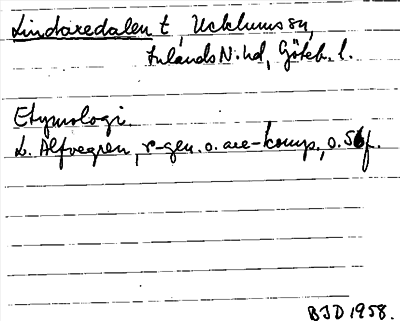 Lindaredalen t, Ucklums sn,
Inlands N. hd, Göteb. l.
Etymologi.
L. Alfvegren, r-gen. o. are-komp., o. 56 f.
BJD 1958.